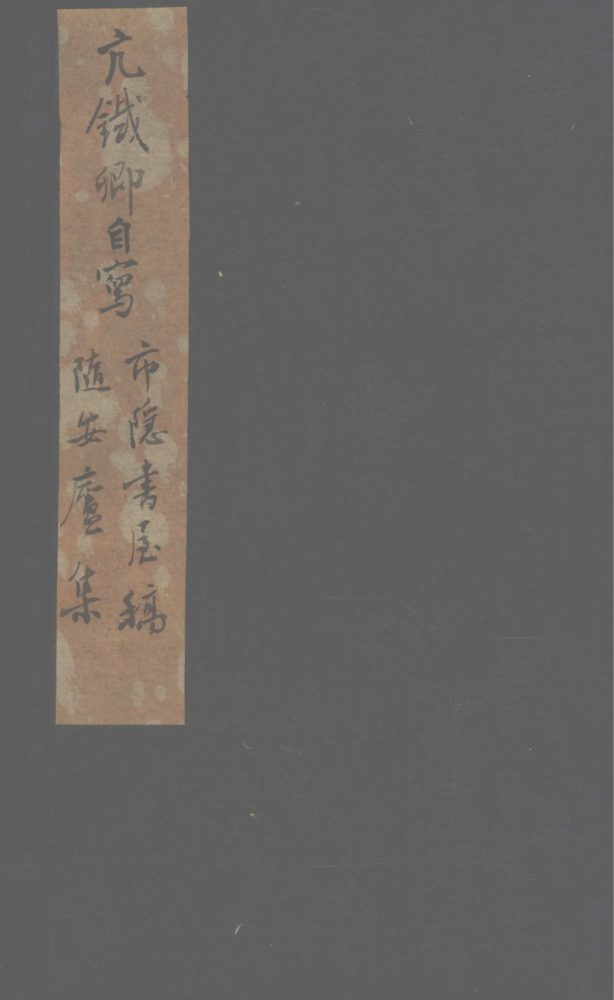 亢鐵卿自寫
市隱書屋稿
隨安廬集